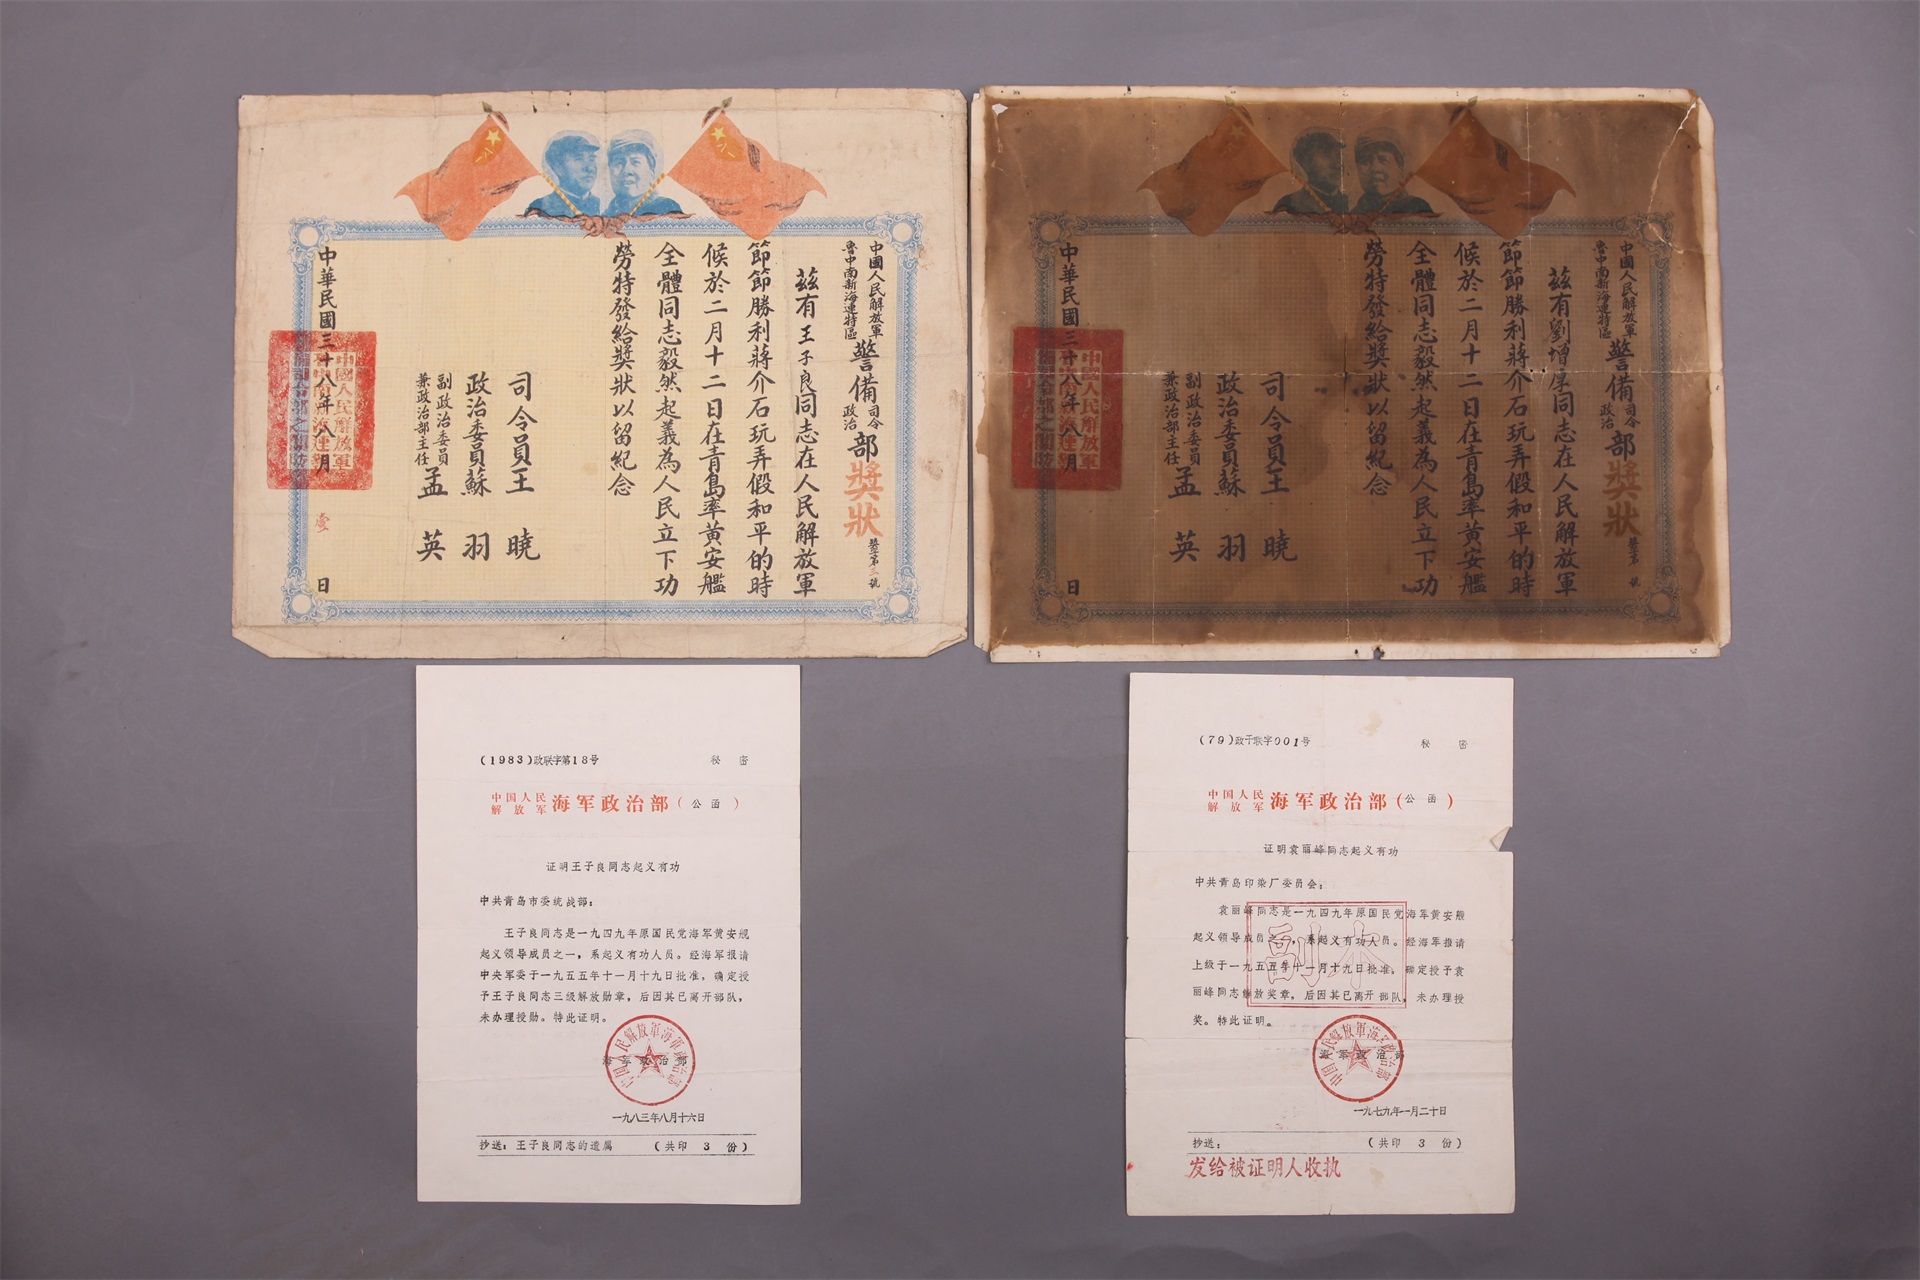 中國人民解放軍
魯中南新海連特區
警備
司令
政治
部
獎狀
獎字第三號
茲有王子良同志在人民解放軍
節節勝利蔣介石玩弄假和平的時
候於二月十二日在青島率黃安艦
全體同志毅然起義為人民立下功
勞特發給獎狀以留紀念
司令員王曉
政治委員蘇羽
副政治委員
兼政治部主任
孟英
中華民國三十八年八月
日
中國人民解放軍
魯中南新海連特區
警備
司令
政治
部
獎狀
獎字第 號
茲有劉增厚同志在人民解放軍
節節勝利蔣介石玩弄假和平的時
候於二月十二日在青島率黃安艦
全體同志毅然起義為人民立下功
勞特發給獎狀以留紀念
司令員王曉
政治委員蘇羽
副政治委員
兼政治部主任
孟英
中華民國三十八年八月
日
(1983)政联字第18号 秘密
中国人民
解放军
海军政治部(公函)
证明王子良同志起义有功
中共青岛市委统战部:
王子良同志是一九四九年原国民党海军黄安舰
起义领导成员之一,系起义有功人员。经海军报请
中央军委于一九五五年十一月十九日批准,确定授
予王子良同志三级解放勋章,后因其已离开部队,
未办理授勋。特此证明。
海军政治部
中国人民解放軍海軍政治部
一九八三年八月十六日
抄送:王子良同志的遗属 (共印3份)
(79)政干联字001号 秘密
中国人民
解放军
海军政治部(公函)
证明袁丽峰同志起义有功
中共青岛印染厂委员会:
袁丽峰同志是一九四九年原国民党海军黄安舰
起义领导成员之一,系起义有功人员。经海军报请
上级于一九五五年十一月十九日批准,确定授予袁
丽峰同志解放奖章,后因其已离开部队,未办理授
奖。特此证明。
副本
海军政治部
中国人民解放軍海軍政治部
一九七九年一月二十日
抄送: (共印3份)
发给被证明人收执